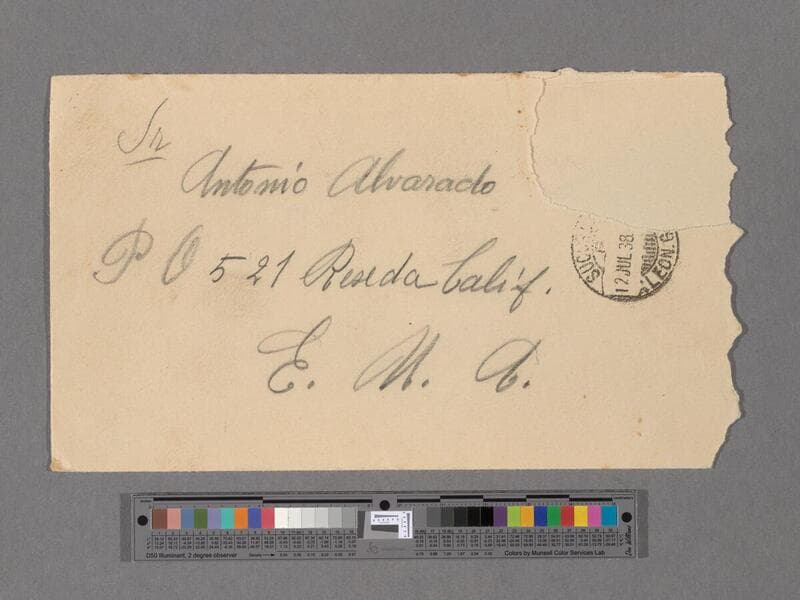 Sr
Antonio Alvarado
P O 521 Reseda Calif.
E. U. A.
12 JUL 38
LEON. G
D50 Illuminant, 2 degree observer
Colors by Munsell Color Services Lab